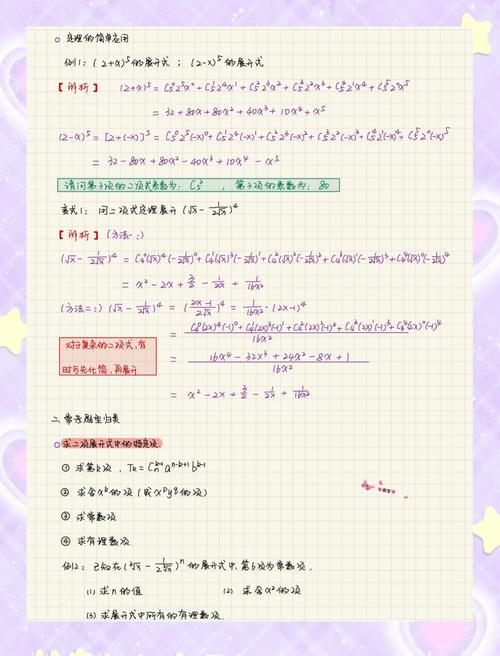 定理的简单应用
例1:(2+x)⁵的展开式;(2-x)⁵的展开式
【解析】(2+x)⁵ = C₅⁰2⁵x⁰ + C₅¹2⁴x¹ + C₅²2³x² + C₅³2²x³ + C₅⁴2¹x⁴ + C₅⁵2⁰x⁵
= 32 + 80x + 80x² + 40x³ + 10x⁴ + x⁵
(2-x)⁵ = [2+(-x)]⁵ = C₅⁰2⁵(-x)⁰ + C₅¹2⁴(-x)¹ + C₅²2³(-x)² + C₅³2²(-x)³ + C₅⁴2¹(-x)⁴ + C₅⁵2⁰(-x)⁵
= 32 - 80x + 80x² - 40x³ + 10x⁴ - x⁵
请问第3项的二项式系数为:C₅²,第3项的系数为:80
变式1:用二项式定理展开(√x - 1/2√x)⁴
【解析】(方法一:)
(√x - 1/2√x)⁴ = C₄⁰(√x)⁴(-1/2√x)⁰ + C₄¹(√x)³(-1/2√x)¹ + C₄²(√x)²(-1/2√x)² + C₄³(√x)¹(-1/2√x)³ + C₄⁴(√x)⁰(-1/2√x)⁴
= x² - 2x + 3/2 - 1/2x + 1/16x²
(方法二:)(√x - 1/2√x)⁴ = (2x-1/2√x)⁴ = 1/16x² · (2x-1)⁴
= C₄⁰(2x)⁴(-1)⁰ + C₄¹(2x)³(-1)¹ + C₄²(2x)²(-1)² + C₄³(2x)¹(-1)³ + C₄⁴(2x)⁰(-1)⁴ / 16x²
对于复杂的二项式,有
时可先化简,再展开
= 16x⁴ - 32x³ + 24x² - 8x + 1 / 16x²
= x² - 2x + 3/2 - 1/2x + 1/16x²
二 常考题型归类
求二项展开式中的特定项
① 求第k项,Tₖ = Cₙᵏ⁻¹aⁿ⁻ᵏ⁺¹bᵏ⁻¹
② 求含xᵏ的项(或xᵖy^q的项)
③ 求常数项
④ 求有理数项
例2:已知在(∛x - 1/2∛x)ⁿ的展开式中,第6项为常数项,
(1) 求n的值 (2) 求含x²的项
(3) 求展开式中所有的有理数项